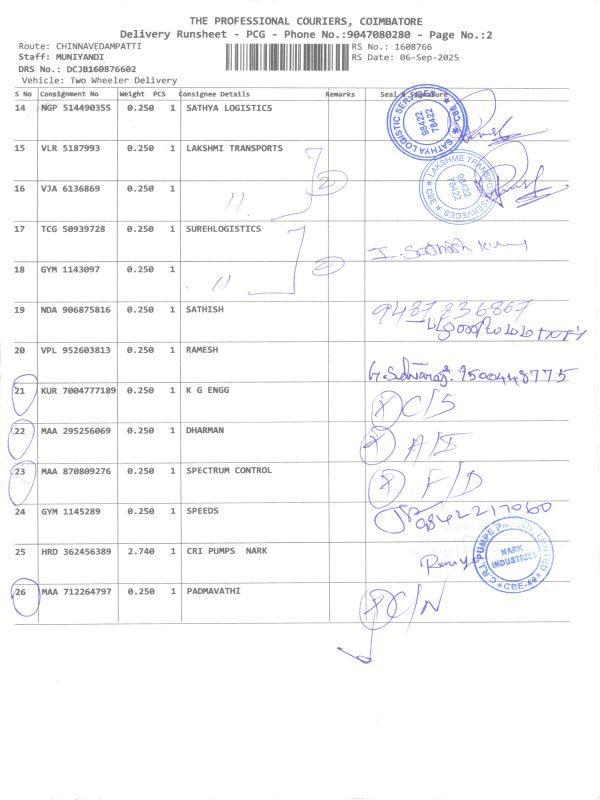 THE PROFESSIONAL COURIERS, COIMBATORE
Delivery Runsheet - PCG - Phone No.:9047080280 - Page No.:2
Route: CHINNAVEDAMPATTI RS No.: 1608766
Staff: MUNIYANDI RS Date: 06-Sep-2025
DRS No.: DCJB160876602
Vehicle: Two Wheeler Delivery
S No Consignment No Weight PCS Consignee Details Remarks Seal & Signature
14 NGP 514490355 0.250 1 SATHYA LOGISTICS
SATHYA LOGISTIC SERVICES CBE 98422 78422
15 VLR 5187993 0.250 1 LAKSHMI TRANSPORTS
16 VJA 6136869 0.250 1 " 2
98422 78422
17 TCG 50939728 0.250 1 SUREHLOGISTICS
18 GYM 1143097 0.250 1 " 2
19 NDA 906875816 0.250 1 SATHISH 9487836867
20 VPL 952603813 0.250 1 RAMESH 9500448775
21 KUR 7004777189 0.250 1 K G ENGG X C/S
22 MAA 295256069 0.250 1 DHARMAN X A/I
23 MAA 870809276 0.250 1 SPECTRUM CONTROL X F/D
24 GYM 1145289 0.250 1 SPEEDS 9842217060
25 HRD 362456389 2.740 1 CRI PUMPS NARK
NARK INDUSTRIES CBE-49
26 MAA 712264797 0.250 1 PADMAVATHI X C/N